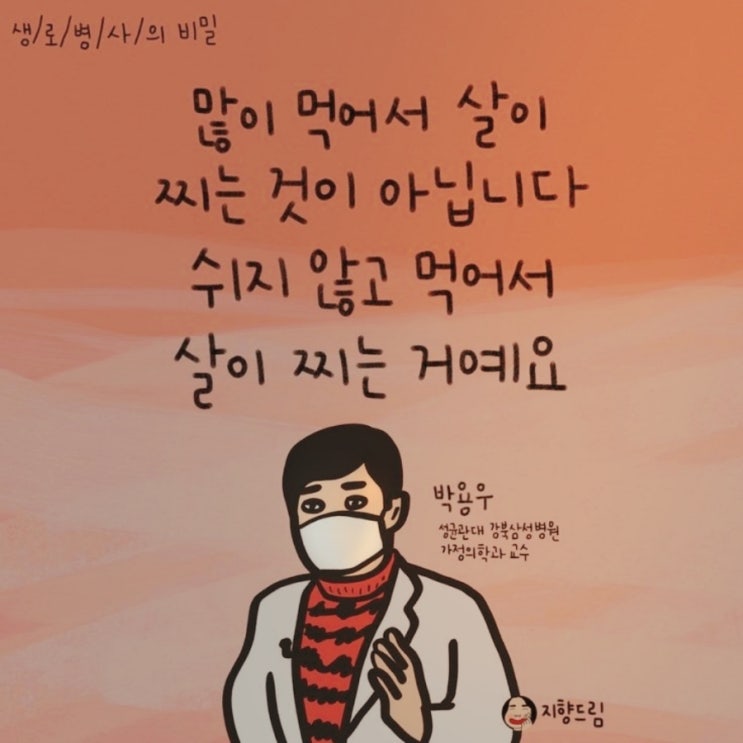 생/로/병/사/의 비밀
많이 먹어서 살이
찌는 것이 아닙니다
쉬지 않고 먹어서
살이 찌는 거예요
박용우
성균관대 강북삼성병원
가정의학과 교수
지향드림